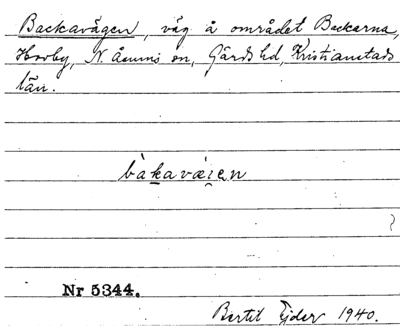 Backavägen, väg å området Backarna,
Horby, N. Åsums sn, Gärds hd, Kristianstads
län.
bàkavä́gen
Nr 5344.
Bertil Ejder 1940.